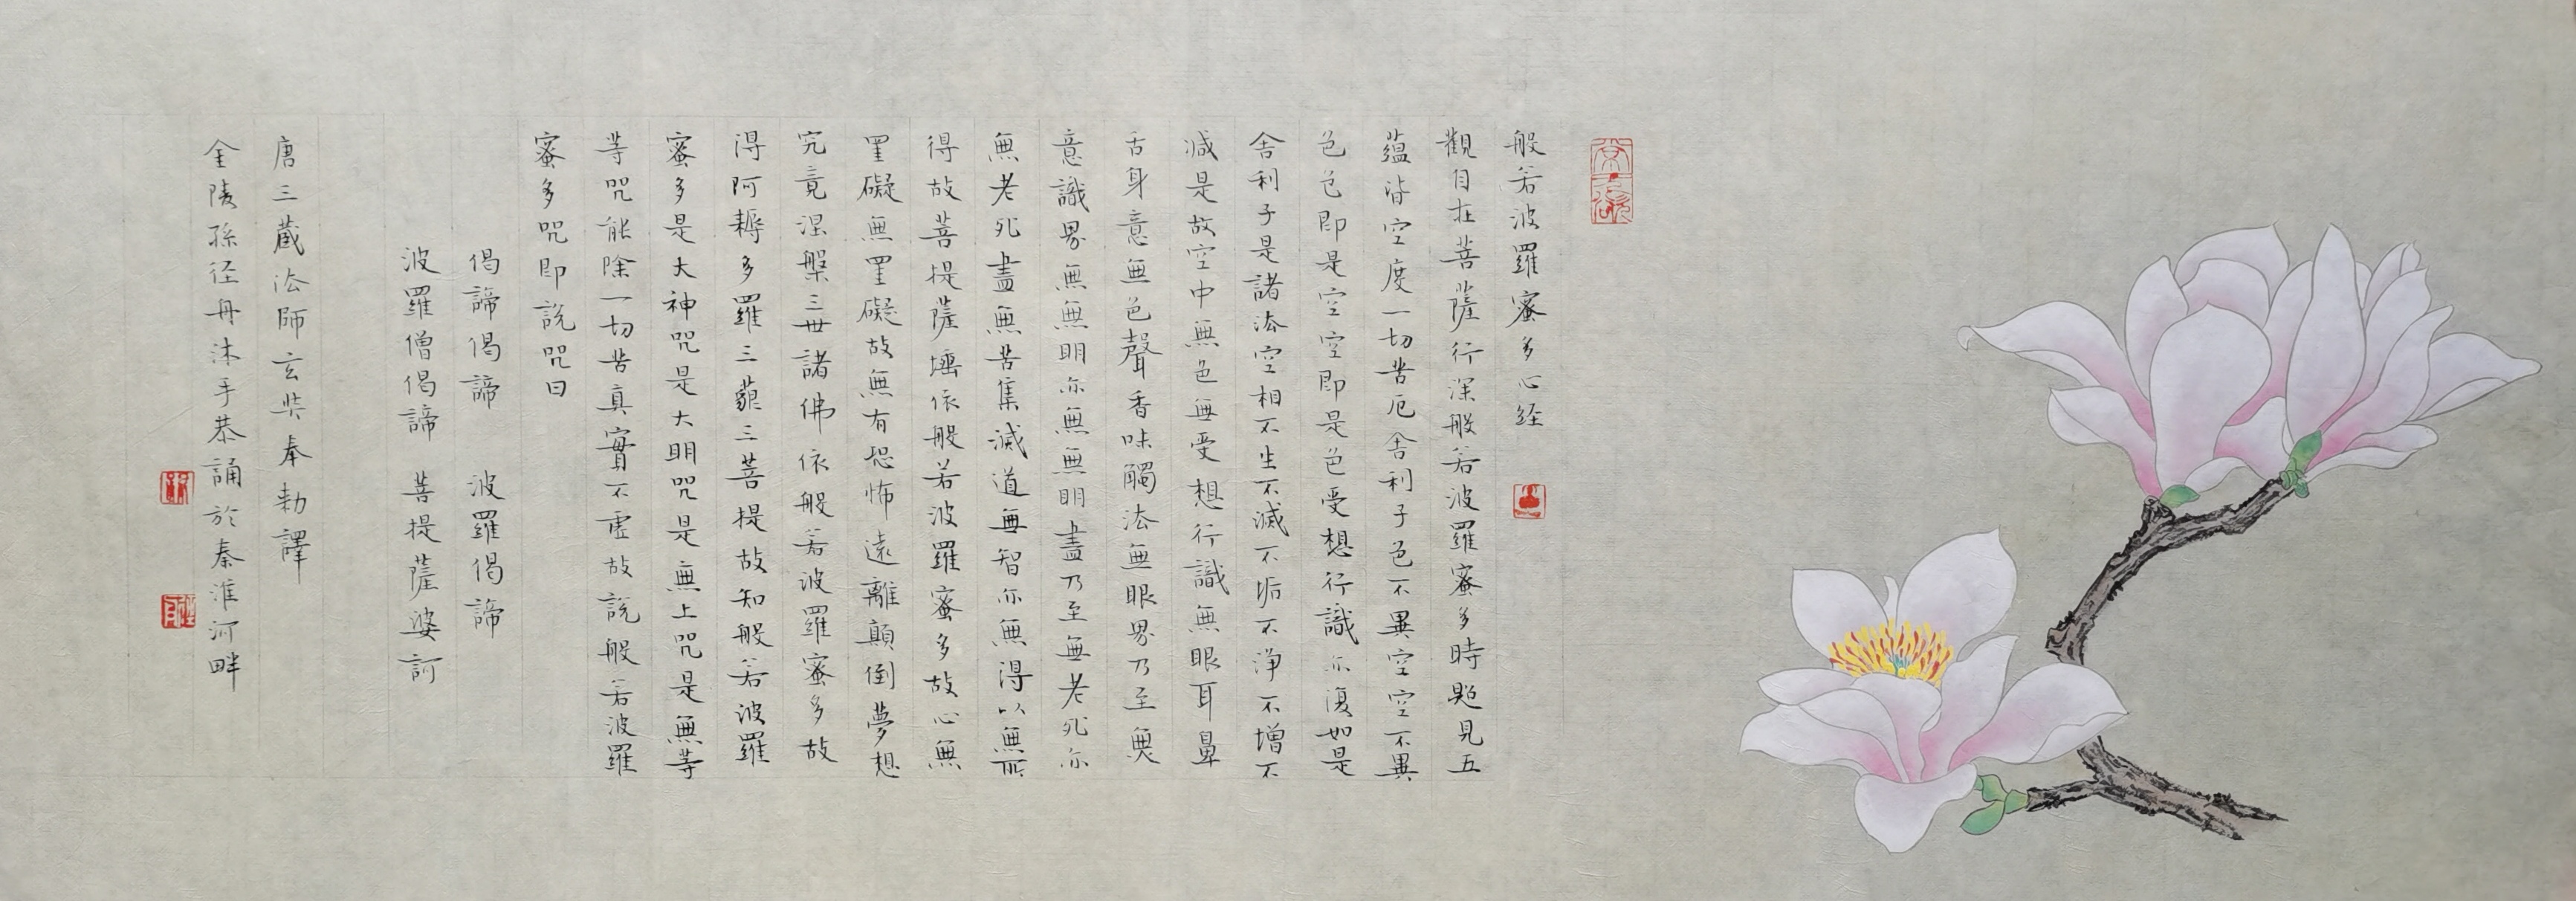 般若波羅蜜多心経
觀自在菩薩行深般若波羅蜜多時照見五
蘊皆空度一切苦厄舍利子色不異空空不異
色色即是空空即是色受想行識亦復如是
舍利子是諸法空相不生不滅不垢不淨不增不
減是故空中無色無受想行識無眼耳鼻
舌身意無色聲香味觸法無眼界乃至無
意識界無無明亦無無明盡乃至無老死亦
無老死盡無苦集滅道無智亦無得以無所
得故菩提薩埵依般若波羅蜜多故心無
罣礙無罣礙故無有恐怖遠離顛倒夢想
究竟涅槃三世諸佛依般若波羅蜜多故
得阿耨多羅三藐三菩提故知般若波羅
蜜多是大神咒是大明咒是無上咒是無等
等咒能除一切苦真實不虛故説般若波羅
蜜多咒即説咒曰
偈諦偈諦 波羅偈諦
波羅僧偈諦 菩提薩婆訶
唐三藏法師玄奘奉勅譯
金陵孫径舟沐手恭誦於秦淮河畔